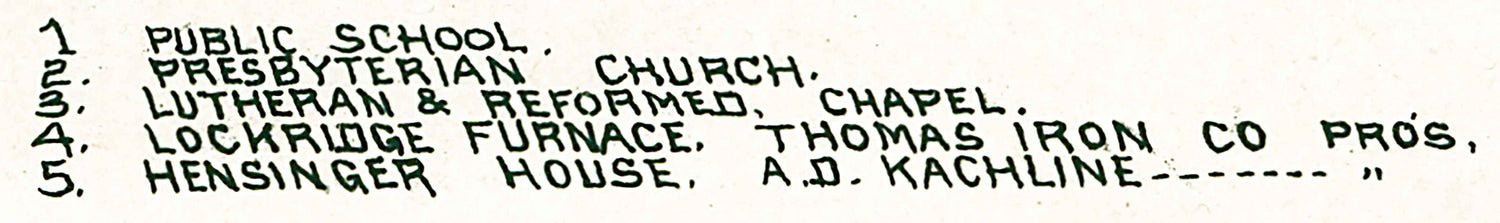 1 PUBLIC SCHOOL.
2. PRESBYTERIAN CHURCH.
3. LUTHERAN & REFORMED. CHAPEL.
4. LOCKRIDGE FURNACE. THOMAS IRON CO PRO'S.
5. HENSINGER HOUSE. A.D. KACHLINE-------- "